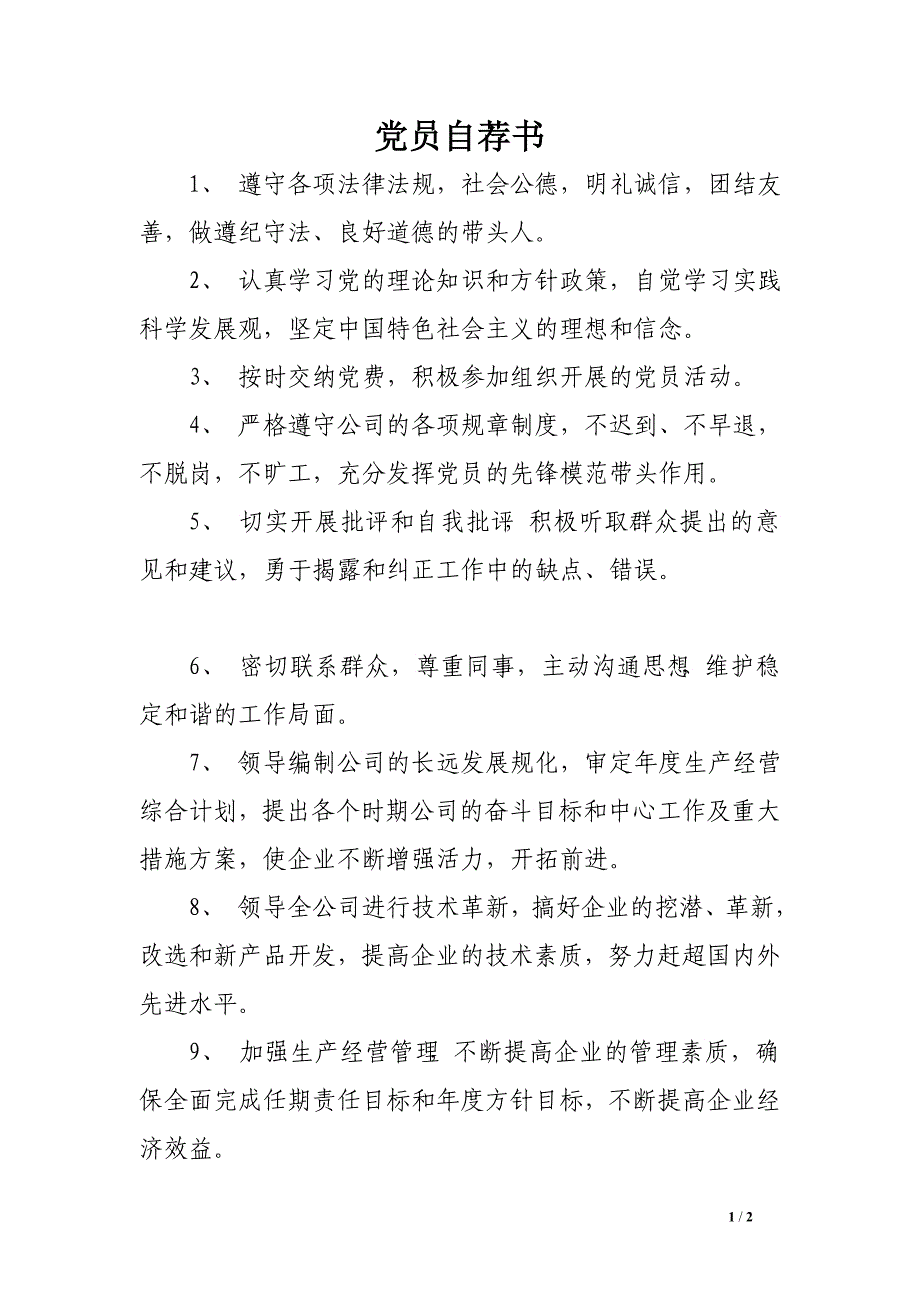 党员自荐书
1、 遵守各项法律法规，社会公德，明礼诚信，团结友
善，做遵纪守法、良好道德的带头人。
2、 认真学习党的理论知识和方针政策，自觉学习实践
科学发展观，坚定中国特色社会主义的理想和信念。
3、 按时交纳党费，积极参加组织开展的党员活动。
4、 严格遵守公司的各项规章制度，不迟到、不早退，
不脱岗，不旷工，充分发挥党员的先锋模范带头作用。
5、 切实开展批评和自我批评 积极听取群众提出的意
见和建议，勇于揭露和纠正工作中的缺点、错误。
6、 密切联系群众，尊重同事，主动沟通思想 维护稳
定和谐的工作局面。
7、 领导编制公司的长远发展规化，审定年度生产经营
综合计划，提出各个时期公司的奋斗目标和中心工作及重大
措施方案，使企业不断增强活力，开拓前进。
8、 领导全公司进行技术革新，搞好企业的挖潜、革新，
改选和新产品开发，提高企业的技术素质，努力赶超国内外
先进水平。
9、 加强生产经营管理 不断提高企业的管理素质，确
保全面完成任期责任目标和年度方针目标，不断提高企业经
济效益。
1 / 2